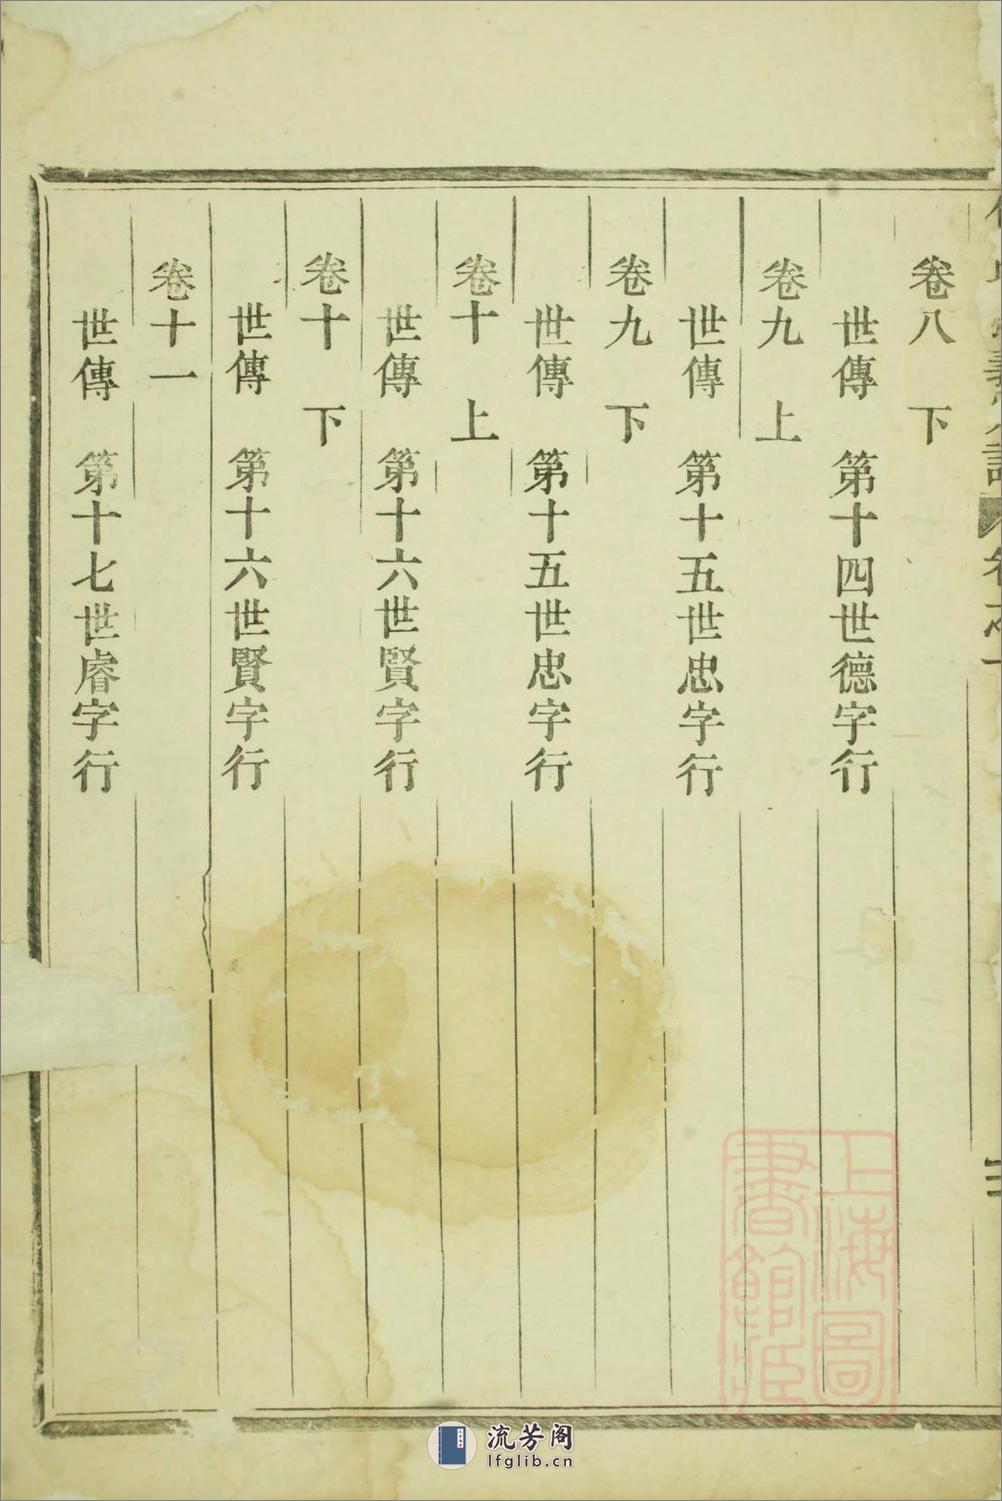 卷八　下
世傳　第十四世德字行
卷九　上
世傳　第十五世忠字行
卷九　下
世傳　第十五世忠字行
卷十　上
世傳　第十六世賢字行
卷十　下
世傳　第十六世賢字行
卷十一
世傳　第十七世睿字行
上海圖
書館藏
流芳阁
lfglib.cn